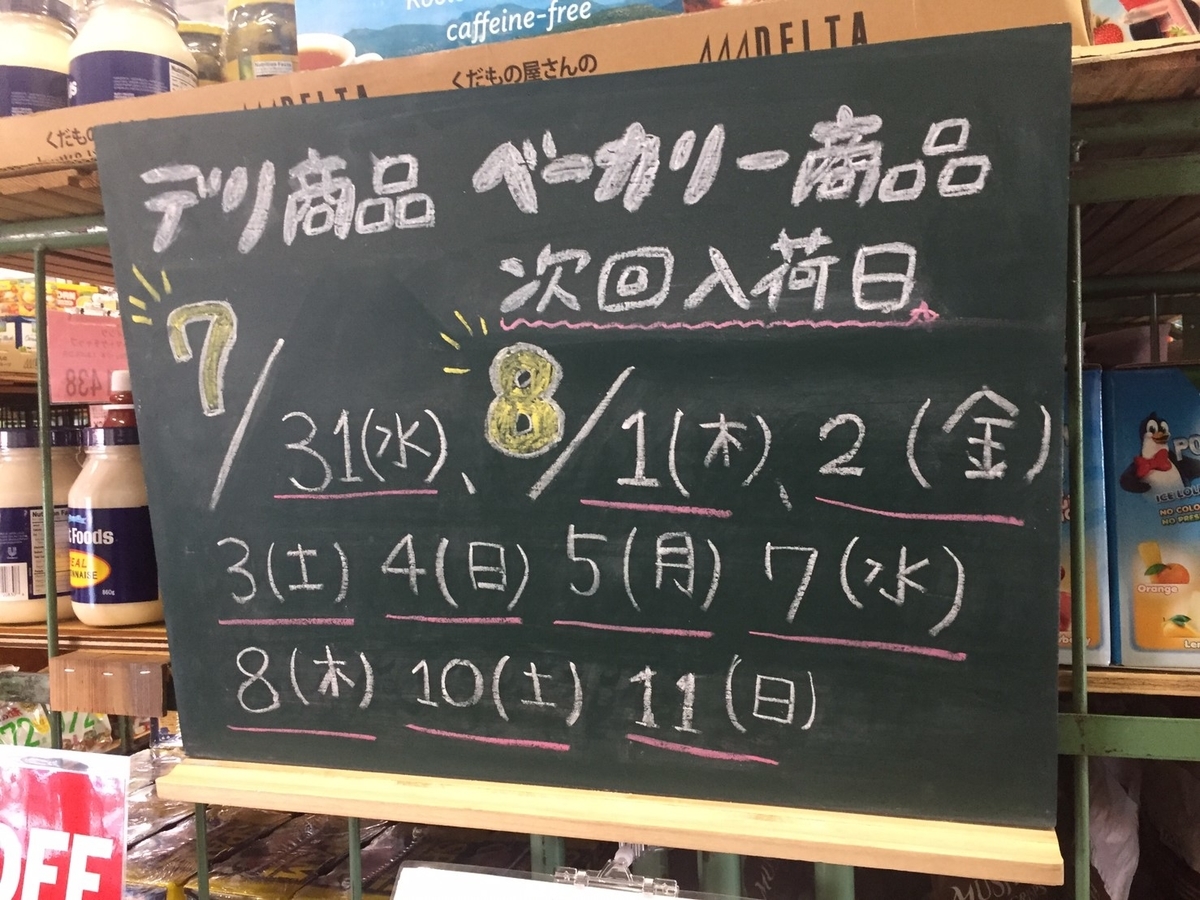 caffeine-free
DELTA
DELTA
くだもの屋さんの
くだもの
デリ商品 ベーカリー商品
次回入荷日
7/31(水)、8/1(木)、2(金)
3(土) 4(日) 5(月) 7(水)
8(木) 10(土) 11(日)
Foods
REAL
860g
438
ICE
Orange
72
OFF